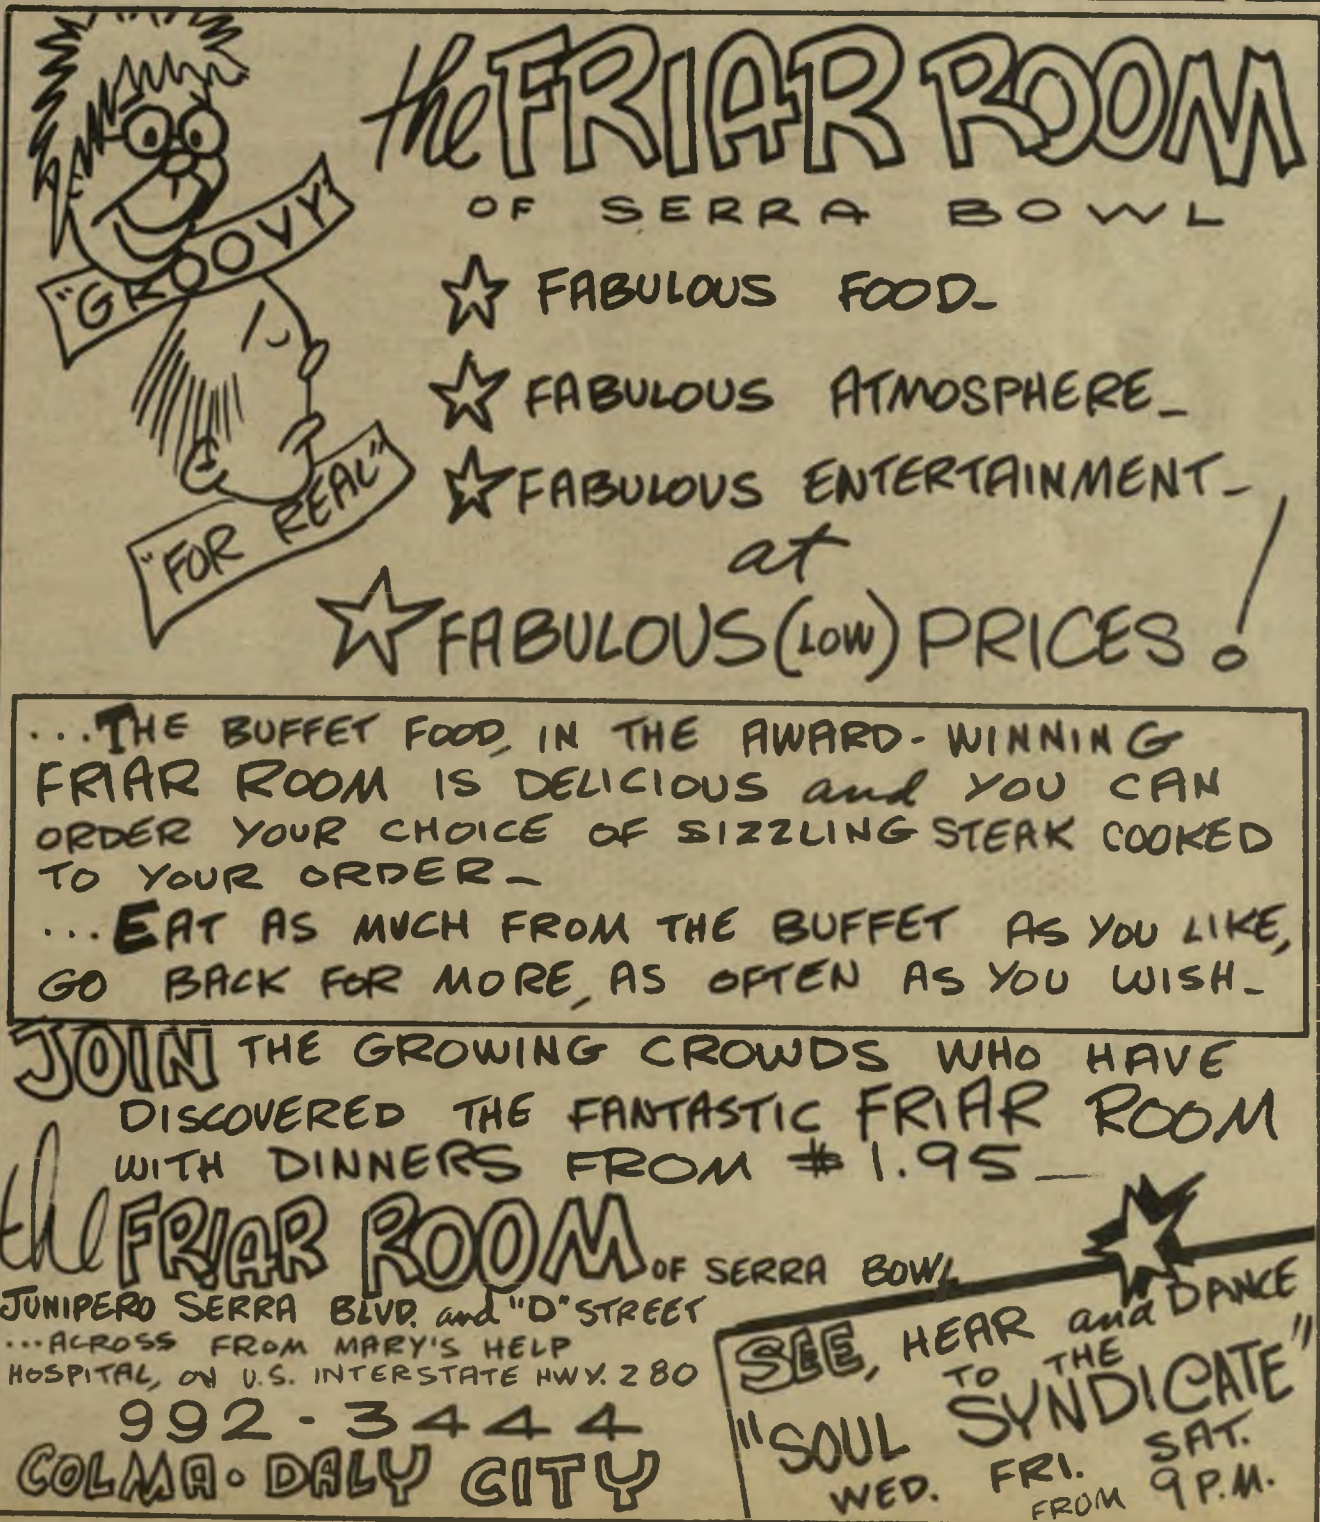 the FRIAR ROOM
OF SERRA BOWL
"GROOVY"
"FOR REAL"
FABULOUS FOOD-
FABULOUS ATMOSPHERE-
FABULOUS ENTERTAINMENT-
at
FABULOUS (LOW) PRICES!
...THE BUFFET FOOD, IN THE AWARD-WINNING
FRIAR ROOM IS DELICIOUS and YOU CAN
ORDER YOUR CHOICE OF SIZZLING STEAK COOKED
TO YOUR ORDER-
...EAT AS MUCH FROM THE BUFFET AS YOU LIKE,
GO BACK FOR MORE, AS OFTEN AS YOU WISH-
JOIN THE GROWING CROWDS WHO HAVE
DISCOVERED THE FANTASTIC FRIAR ROOM
WITH DINNERS FROM $1.95-
the FRIAR ROOM OF SERRA BOWL
JUNIPERO SERRA BLVD. and "D" STREET
...ACROSS FROM MARY'S HELP
HOSPITAL, ON U.S. INTERSTATE HWY. 280
992-3444
COLMA · DALY CITY
SEE, HEAR and DANCE
TO THE
"SOUL SYNDICATE"
WED. FRI. SAT.
FROM 9 P.M.